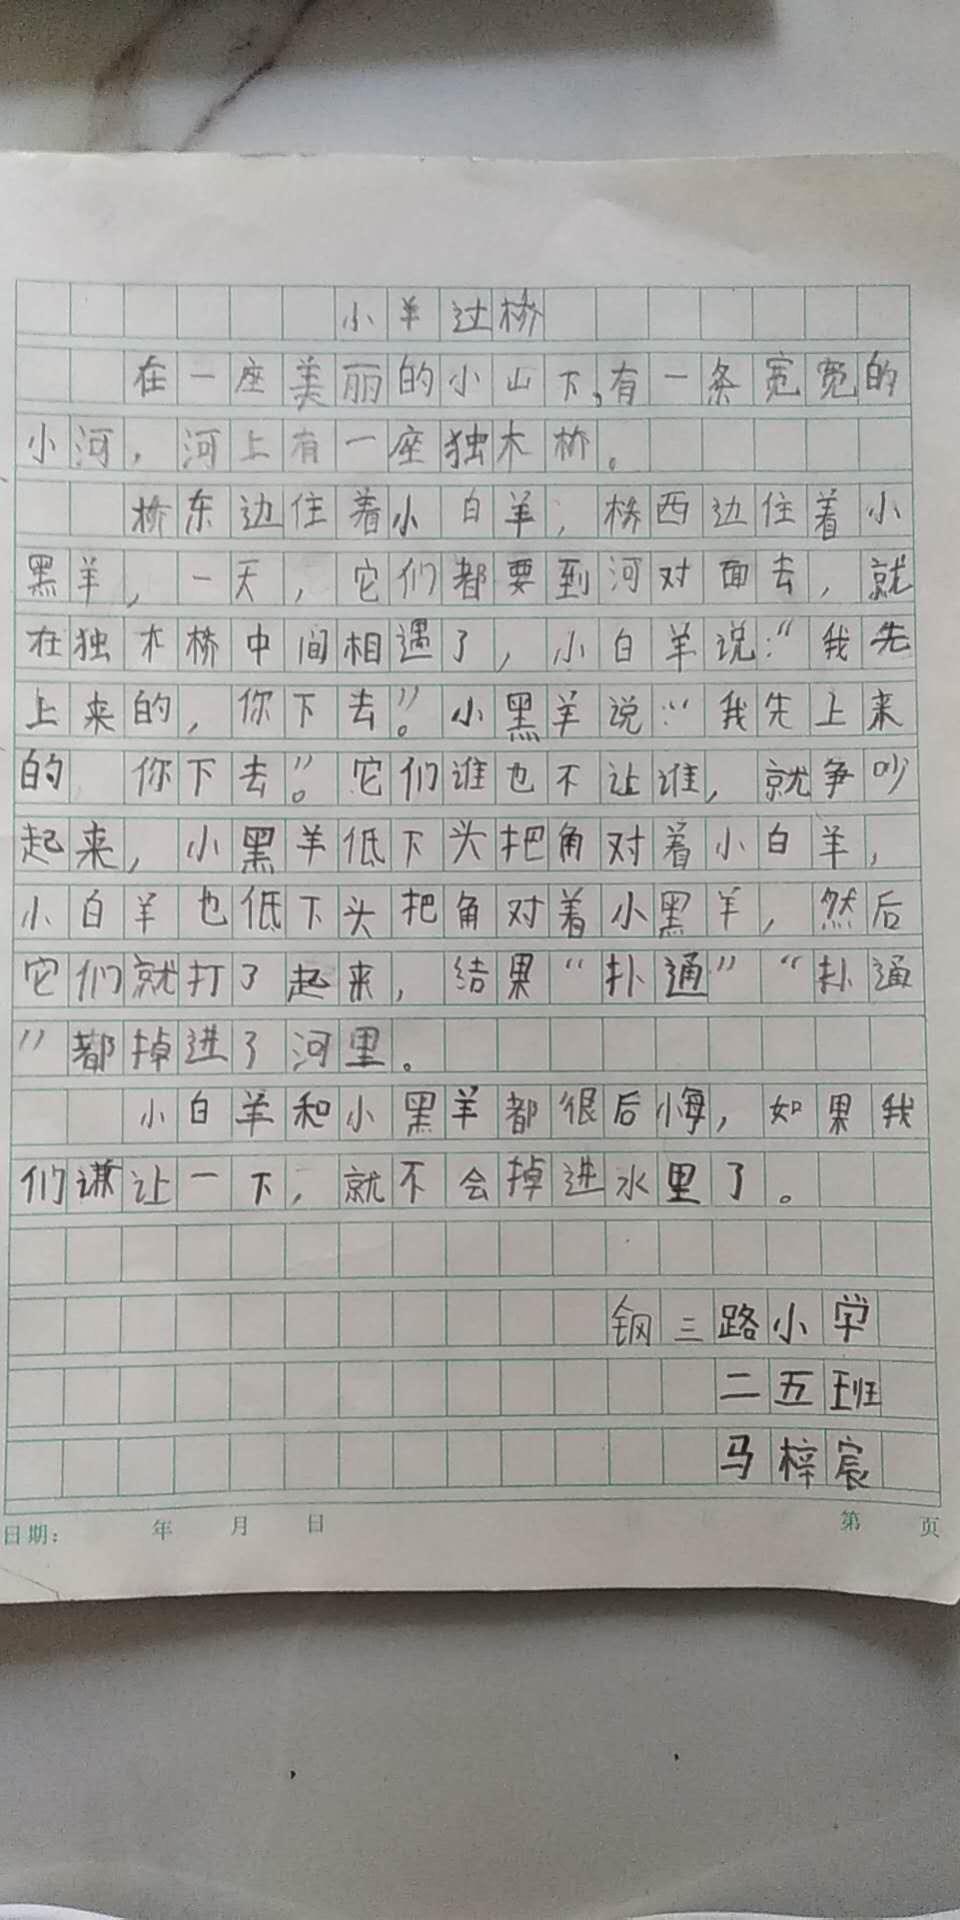 小羊过桥
在一座美丽的小山下,有一条宽宽的
小河，河上有一座独木桥。
桥东边住着小白羊，桥西边住着小
黑羊，一天，它们都要到河对面去，就
在独木桥中间相遇了，小白羊说:“我先
上来的，你下去”。小黑羊说:“我先上来
的 你下去”。它们谁也不让谁，就争吵
起来，小黑羊低下头把角对着小白羊，
小白羊也低下头把角对着小黑羊，然后
它们就打了起来，结果“扑通”“扑通
”都掉进了河里。
小白羊和小黑羊都很后悔，如果我
们谦让一下，就不会掉进水里了。
钢三路小学
二五班
马梓宸
日期: 年 月 日 第 页